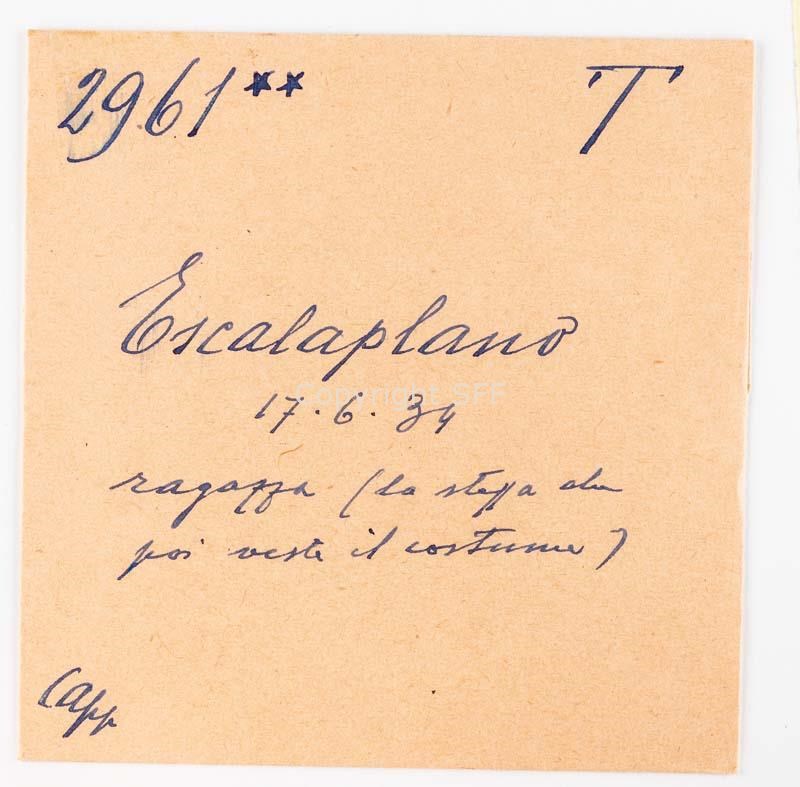 2961** T
Escalaplano
Copyright SFF
17.6.34
ragazza (la stessa che
poi veste il costume)
Capp